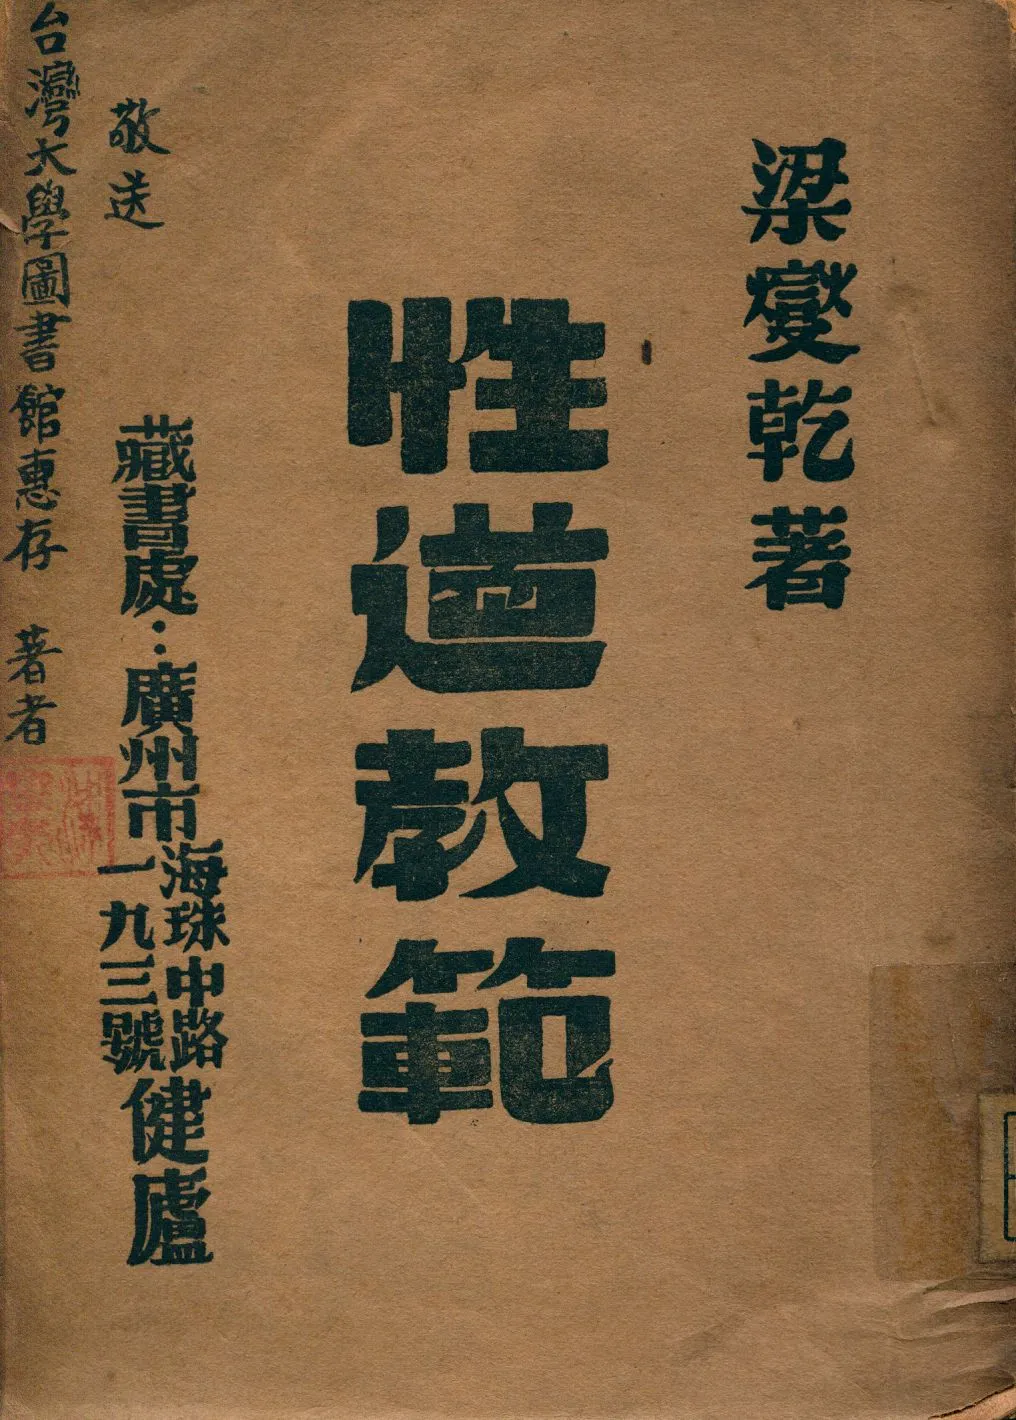 梁燮乾著
性道教範
藏書處：廣州市海珠中路一九三號健廬
敬送
台灣大學圖書館惠存 著者